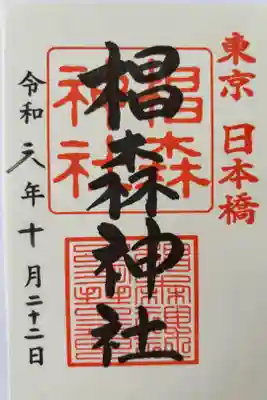 東京 日本橋
椙森神社
椙森
神社
令和元年十月二十二日